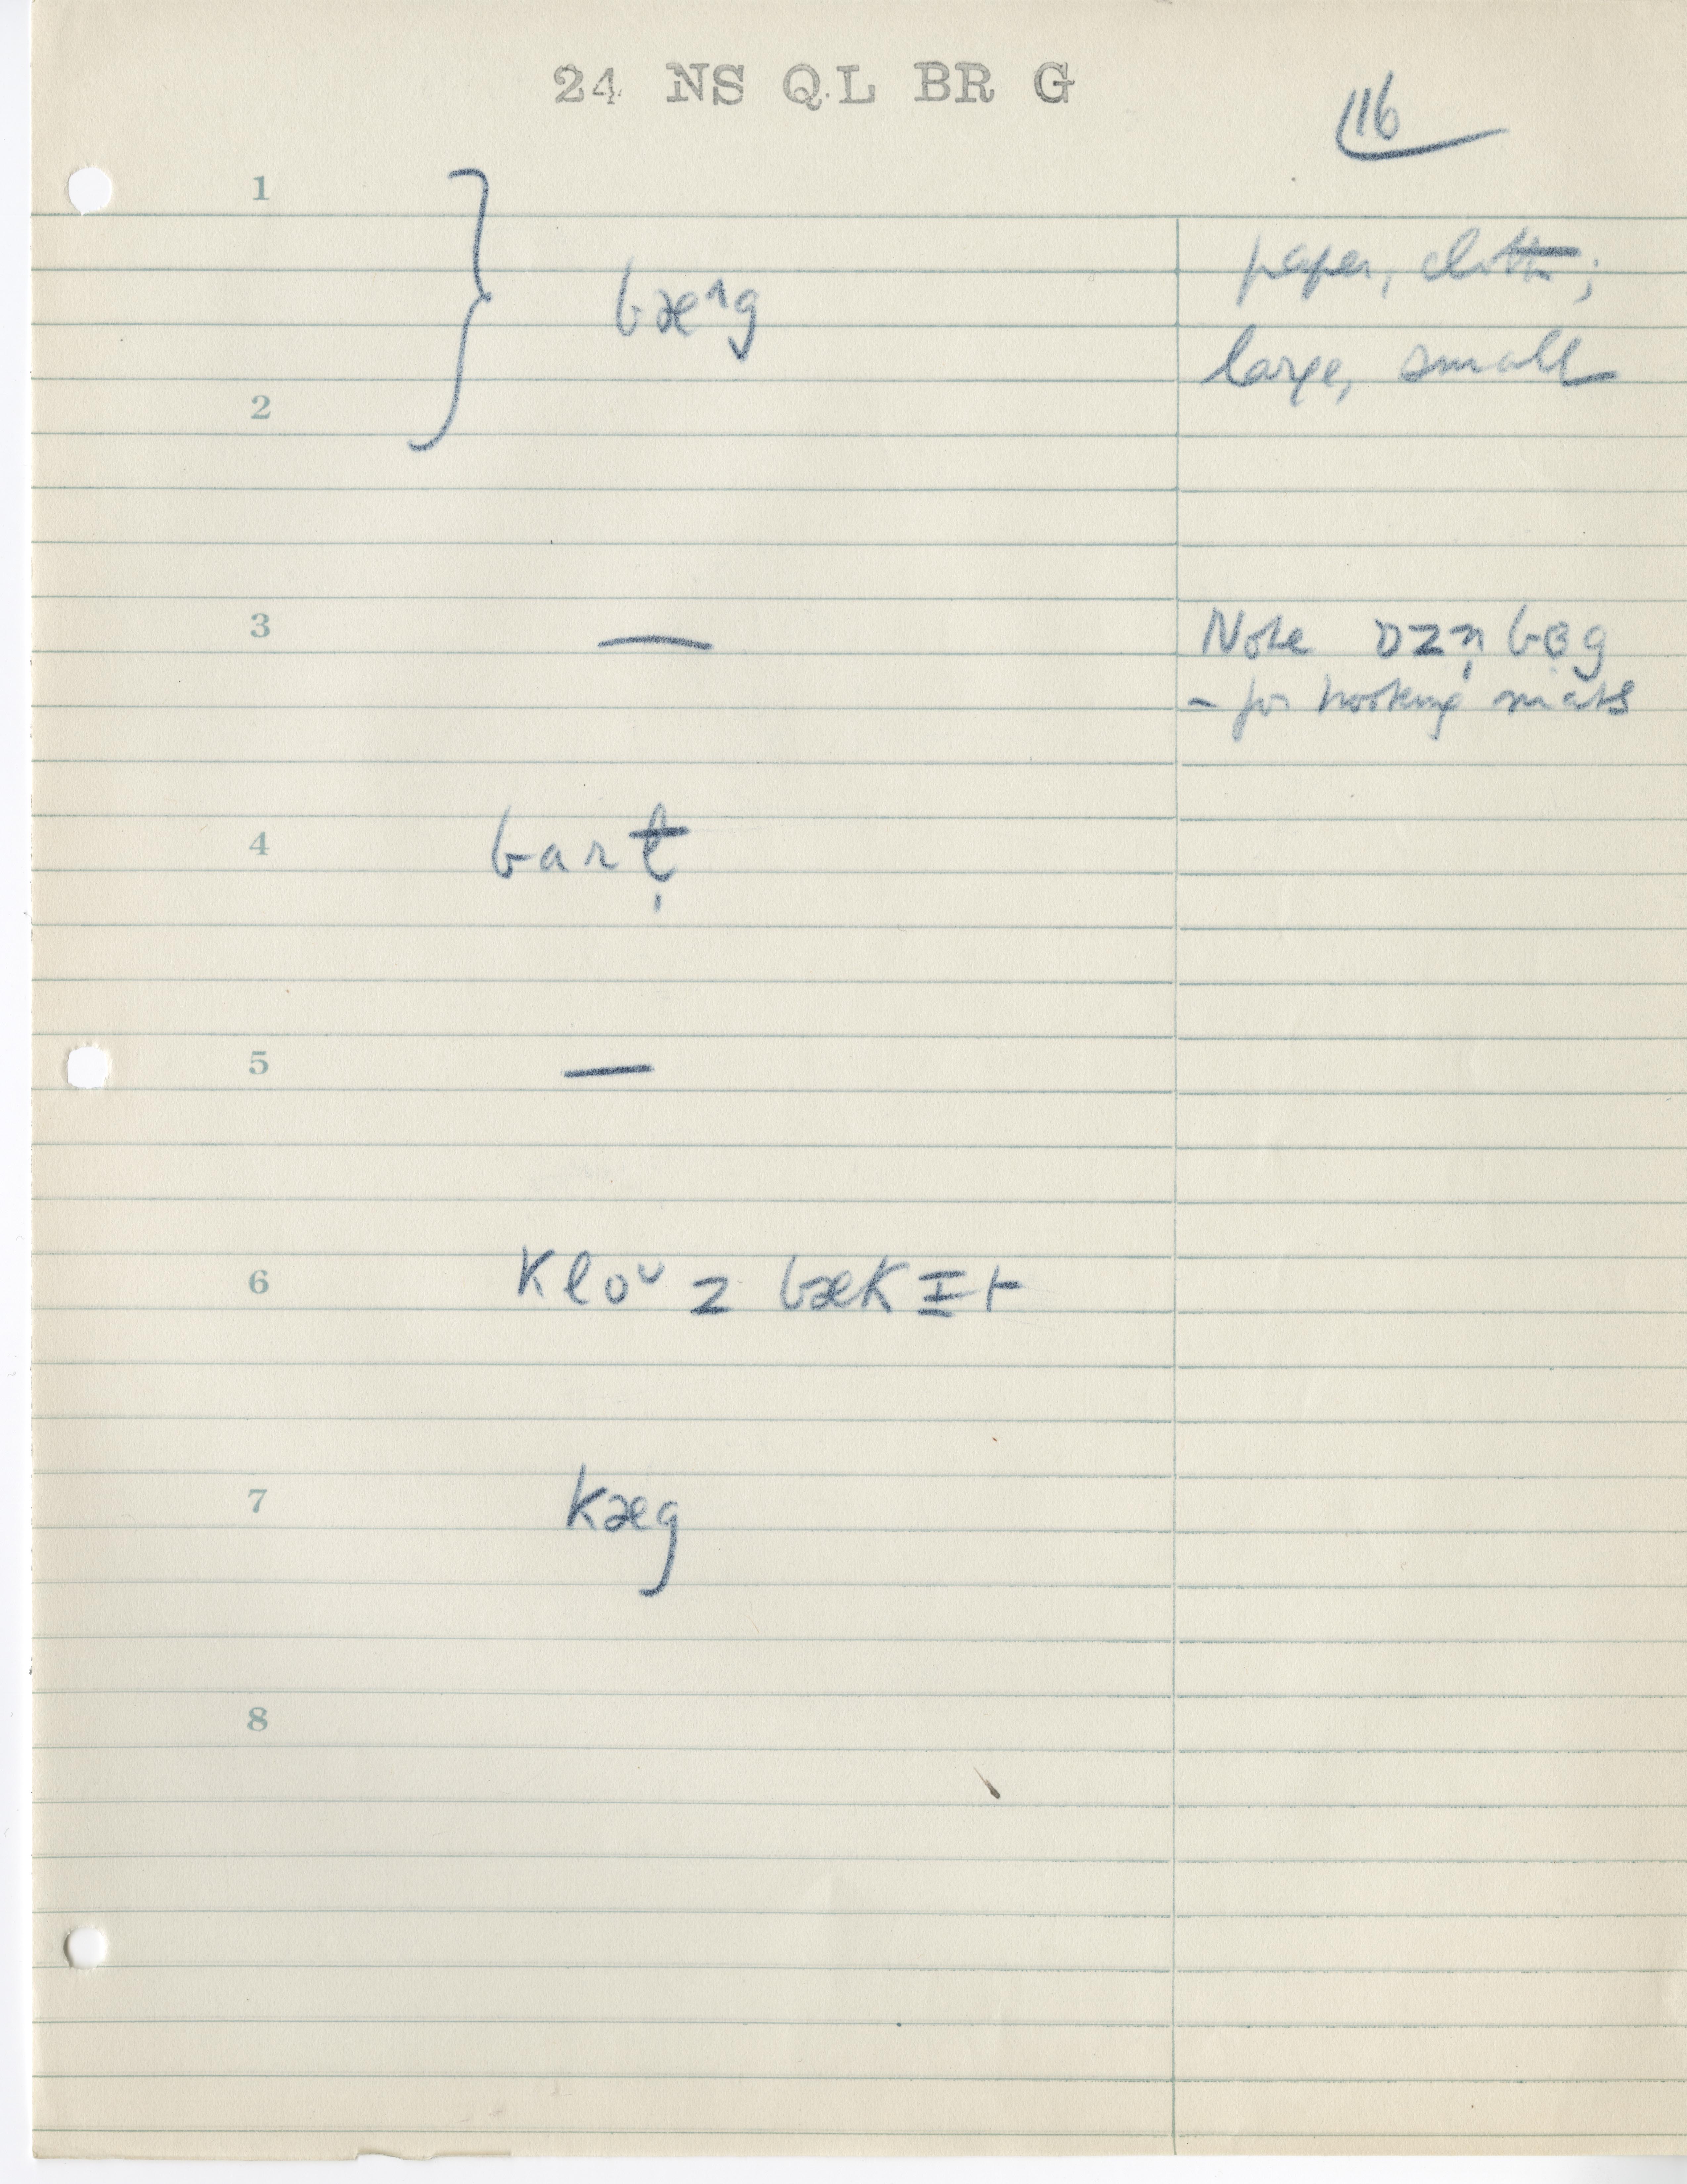 24 NS QL BR G
116
1
bæ^g
paper, cloth;
large, small
2
3 —
Note ɒzn̩ bɐg
- for hooking mats
4 barɫ̩
5 —
6 kloᴜz bækɪt
7 kæg
8